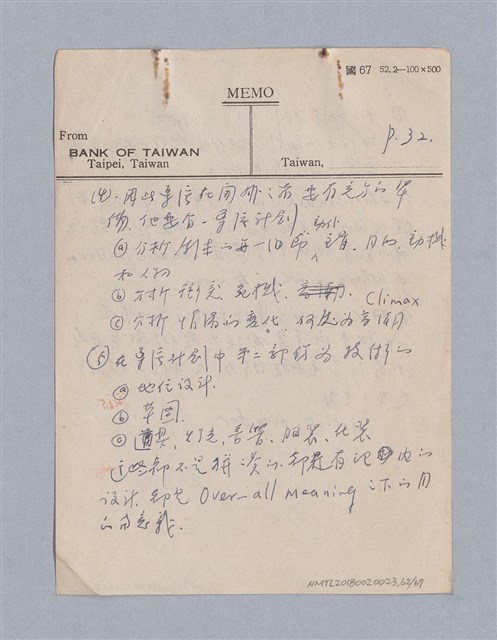 國 67 52.2—100×500
MEMO
From
BANK OF TAIWAN
Taipei, Taiwan
Taiwan,
p.32.
(4). 因此導演在開排之前要有充分的準
備, 他要有一導演計劃
ⓐ 分析劇本的每一個節、主旨、目的、動機
動作
和人物
ⓑ 分析衝突、危機、 Climax
ⓒ 分析情緒的變化, 何處為高潮
⑤ 在導演計劃中第二部份為技術的
ⓐ 地位設計.
ⓑ 草圖.
ⓒ 道具、灯光、音響、服裝、化裝
這些都不是拼湊的都是有理由的
設計, 都在 Over-all Meaning 之下的有
的意義.
NMTL20180020023,62/67